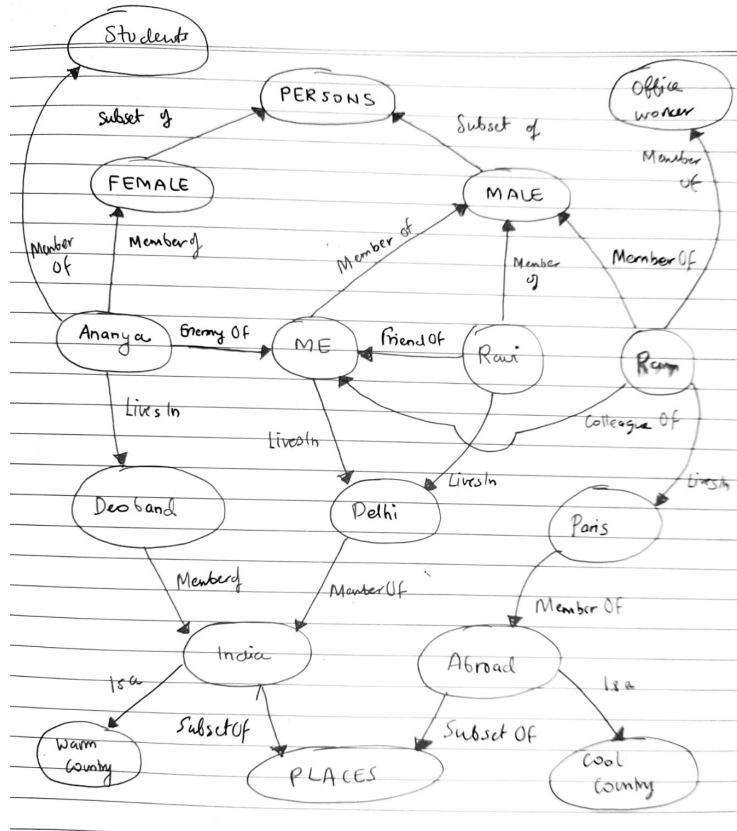 Students
PERSONS
Office
worker
Subset of
Subset of
Member
Of
FEMALE
MALE
Member
Of
Member of
Member of
Member
of
Member Of
Ananya
Enemy Of
ME
Friend Of
Ravi
Ram
Lives In
Lives In
Colleague Of
Lives In
Lives In
Deoband
Delhi
Paris
Member of
Member Of
Member Of
India
Abroad
Is a
Is a
Subset Of
Subset Of
Warm
Country
PLACES
Cool
Country